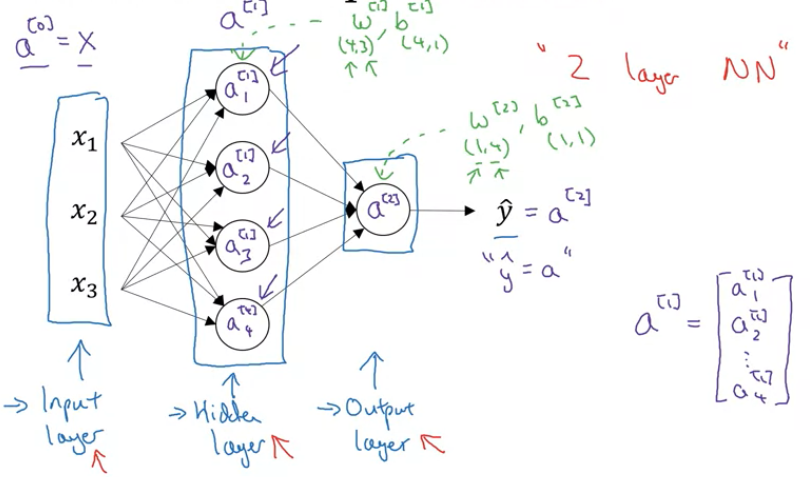 a^[0] = X
a^[1]
w^[1], b^[1]
(4,3) (4,1)
"2 layer NN"
x₁
x₂
x₃
a₁^[1]
a₂^[1]
a₃^[1]
a₄^[1]
a^[2]
w^[2], b^[2]
(1,4) (1,1)
ŷ = a^[2]
"ŷ = a"
a^[1] = [a₁^[1]
a₂^[1]
⋮
a₄^[1]]
→ Input
layer
→ Hidden
layer
→ Output
layer